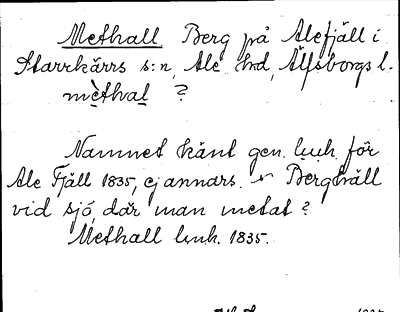 Methall Berg på Alefjäll i
Starrkärrs s:n, Ale hd, Älfsborgs l.
mèthval ?
Namnet känt gen. lmk. för
Ale Fjäll 1835, ej annars. Berghäll
vid sjö, där man metat ?
Methall lmk. 1835.